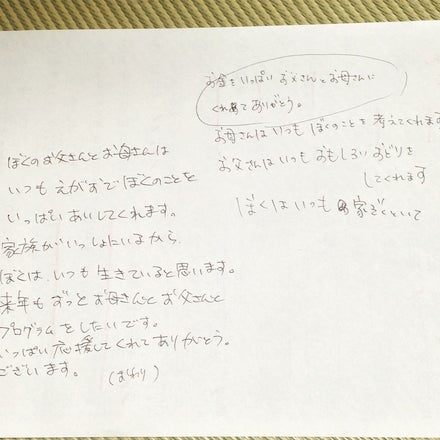 お金をいっぱいお父さんとお母さんに
くれてありがとう。
お母さんはいつもぼくのことを考えてくれます
お父さんはいつもおもしろいおどりを
してくれます
ぼくはいつも家ぞくといて
ぼくのお父さんとお母さんは
いつもえがおでぼくのことを
いっぱいあいしてくれます。
家族がいっしょにいるから、
ぼくは、いつも生きていると思います。
来年もずっとお母さんとお父さんと
プログラムをしたいです。
いっぱい応援してくれてありがとう。
ございます。 (おわり)